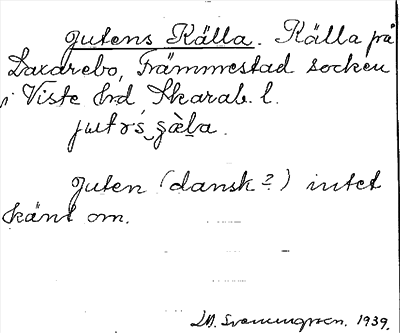 Jutens Källa. Källa på
Laxarebo, Främmestad socken
i Viste hrd Skarab. l.
Juten (dansk?) intet
känt om.
1939.